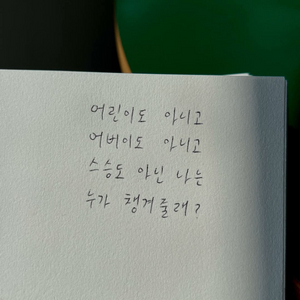 어린이도 아니고
어버이도 아니고
스승도 아닌 나는
누가 챙겨줄래?